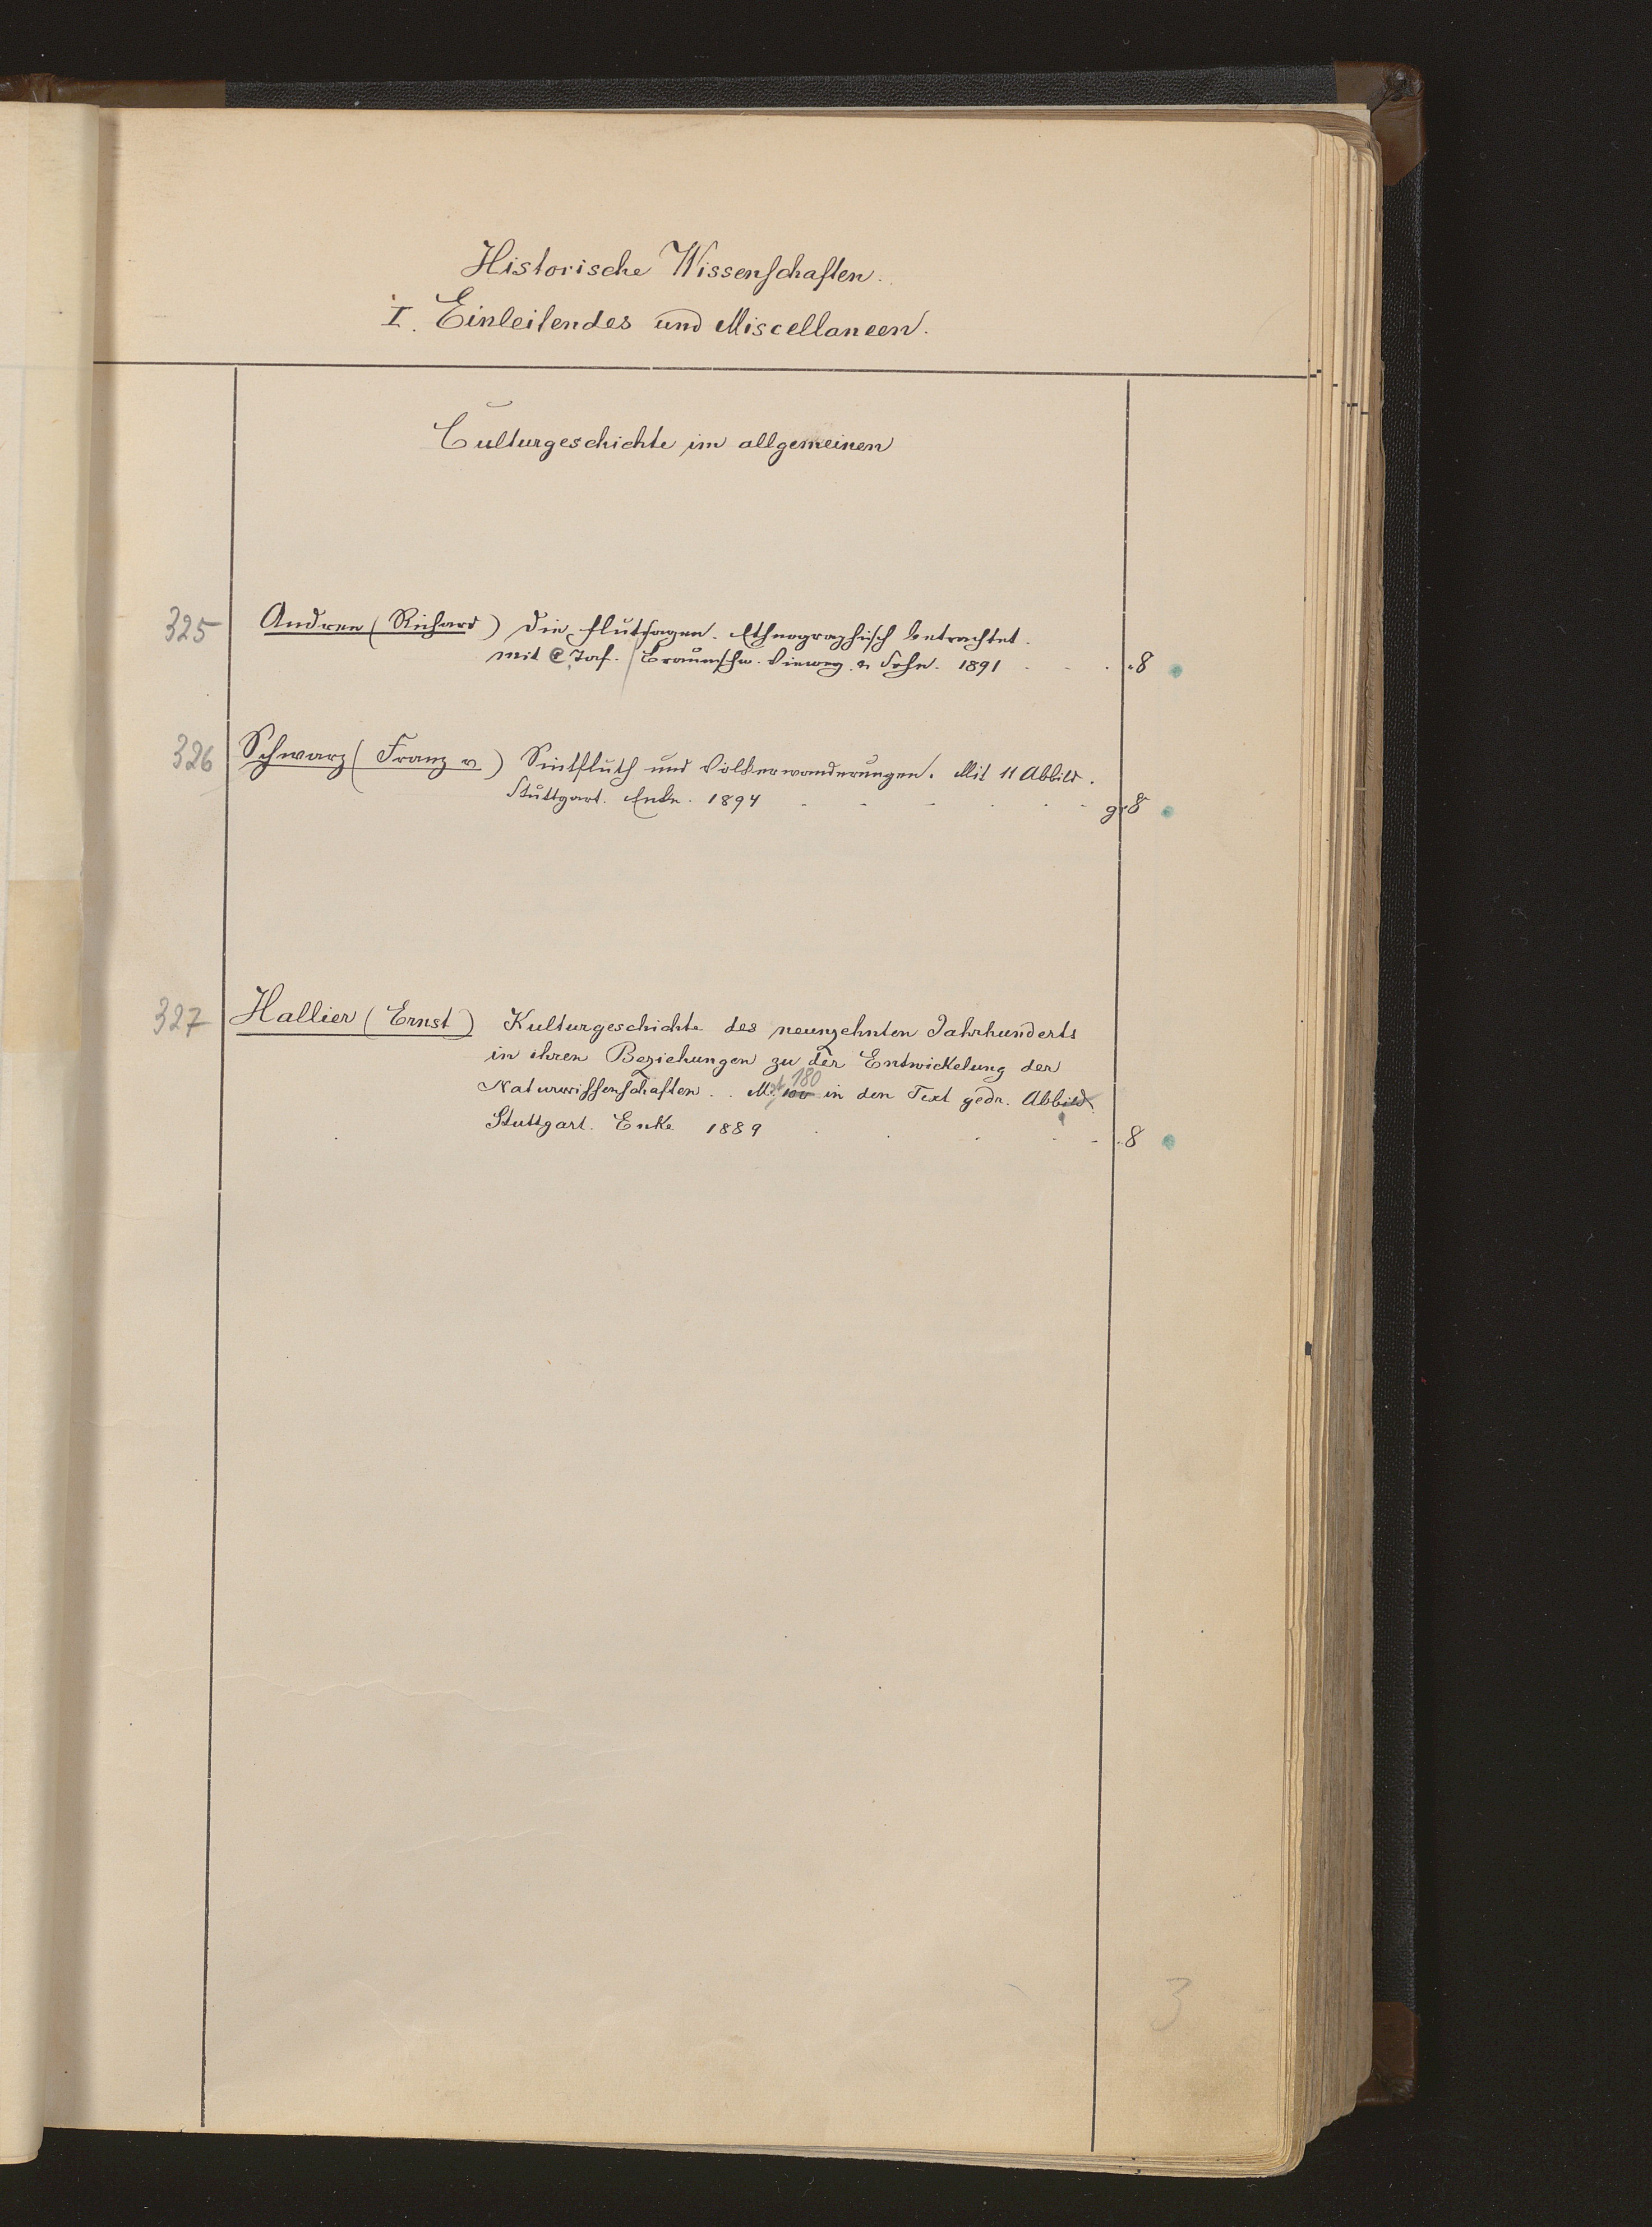 Historische Wissenschaften.
I. Einleitendes und Miscellaneen.
Culturgeschichte im allgemeinen
325 Andree (Richard) Die Flutsagen. Ethnographisch betrachtet.
Mit Taf. Braunschw. Vieweg & Sohn. 1891 . . . 8
326 Schwarz (Franz v) Sintfluth und Völkerwanderungen. Mit 11 Abbild.
Stuttgart. Enke. 1894 - - - - - gr 8
327 Hallier (Ernst) Kulturgeschichte des neunzehnten Jahrhunderts
in ihren Beziehungen zu der Entwickelung der
180
Naturwissenschaften. . Mit 100 in den Text gedr. Abbild.
Stuttgart. Enke 1889 . . - - - . 8
3